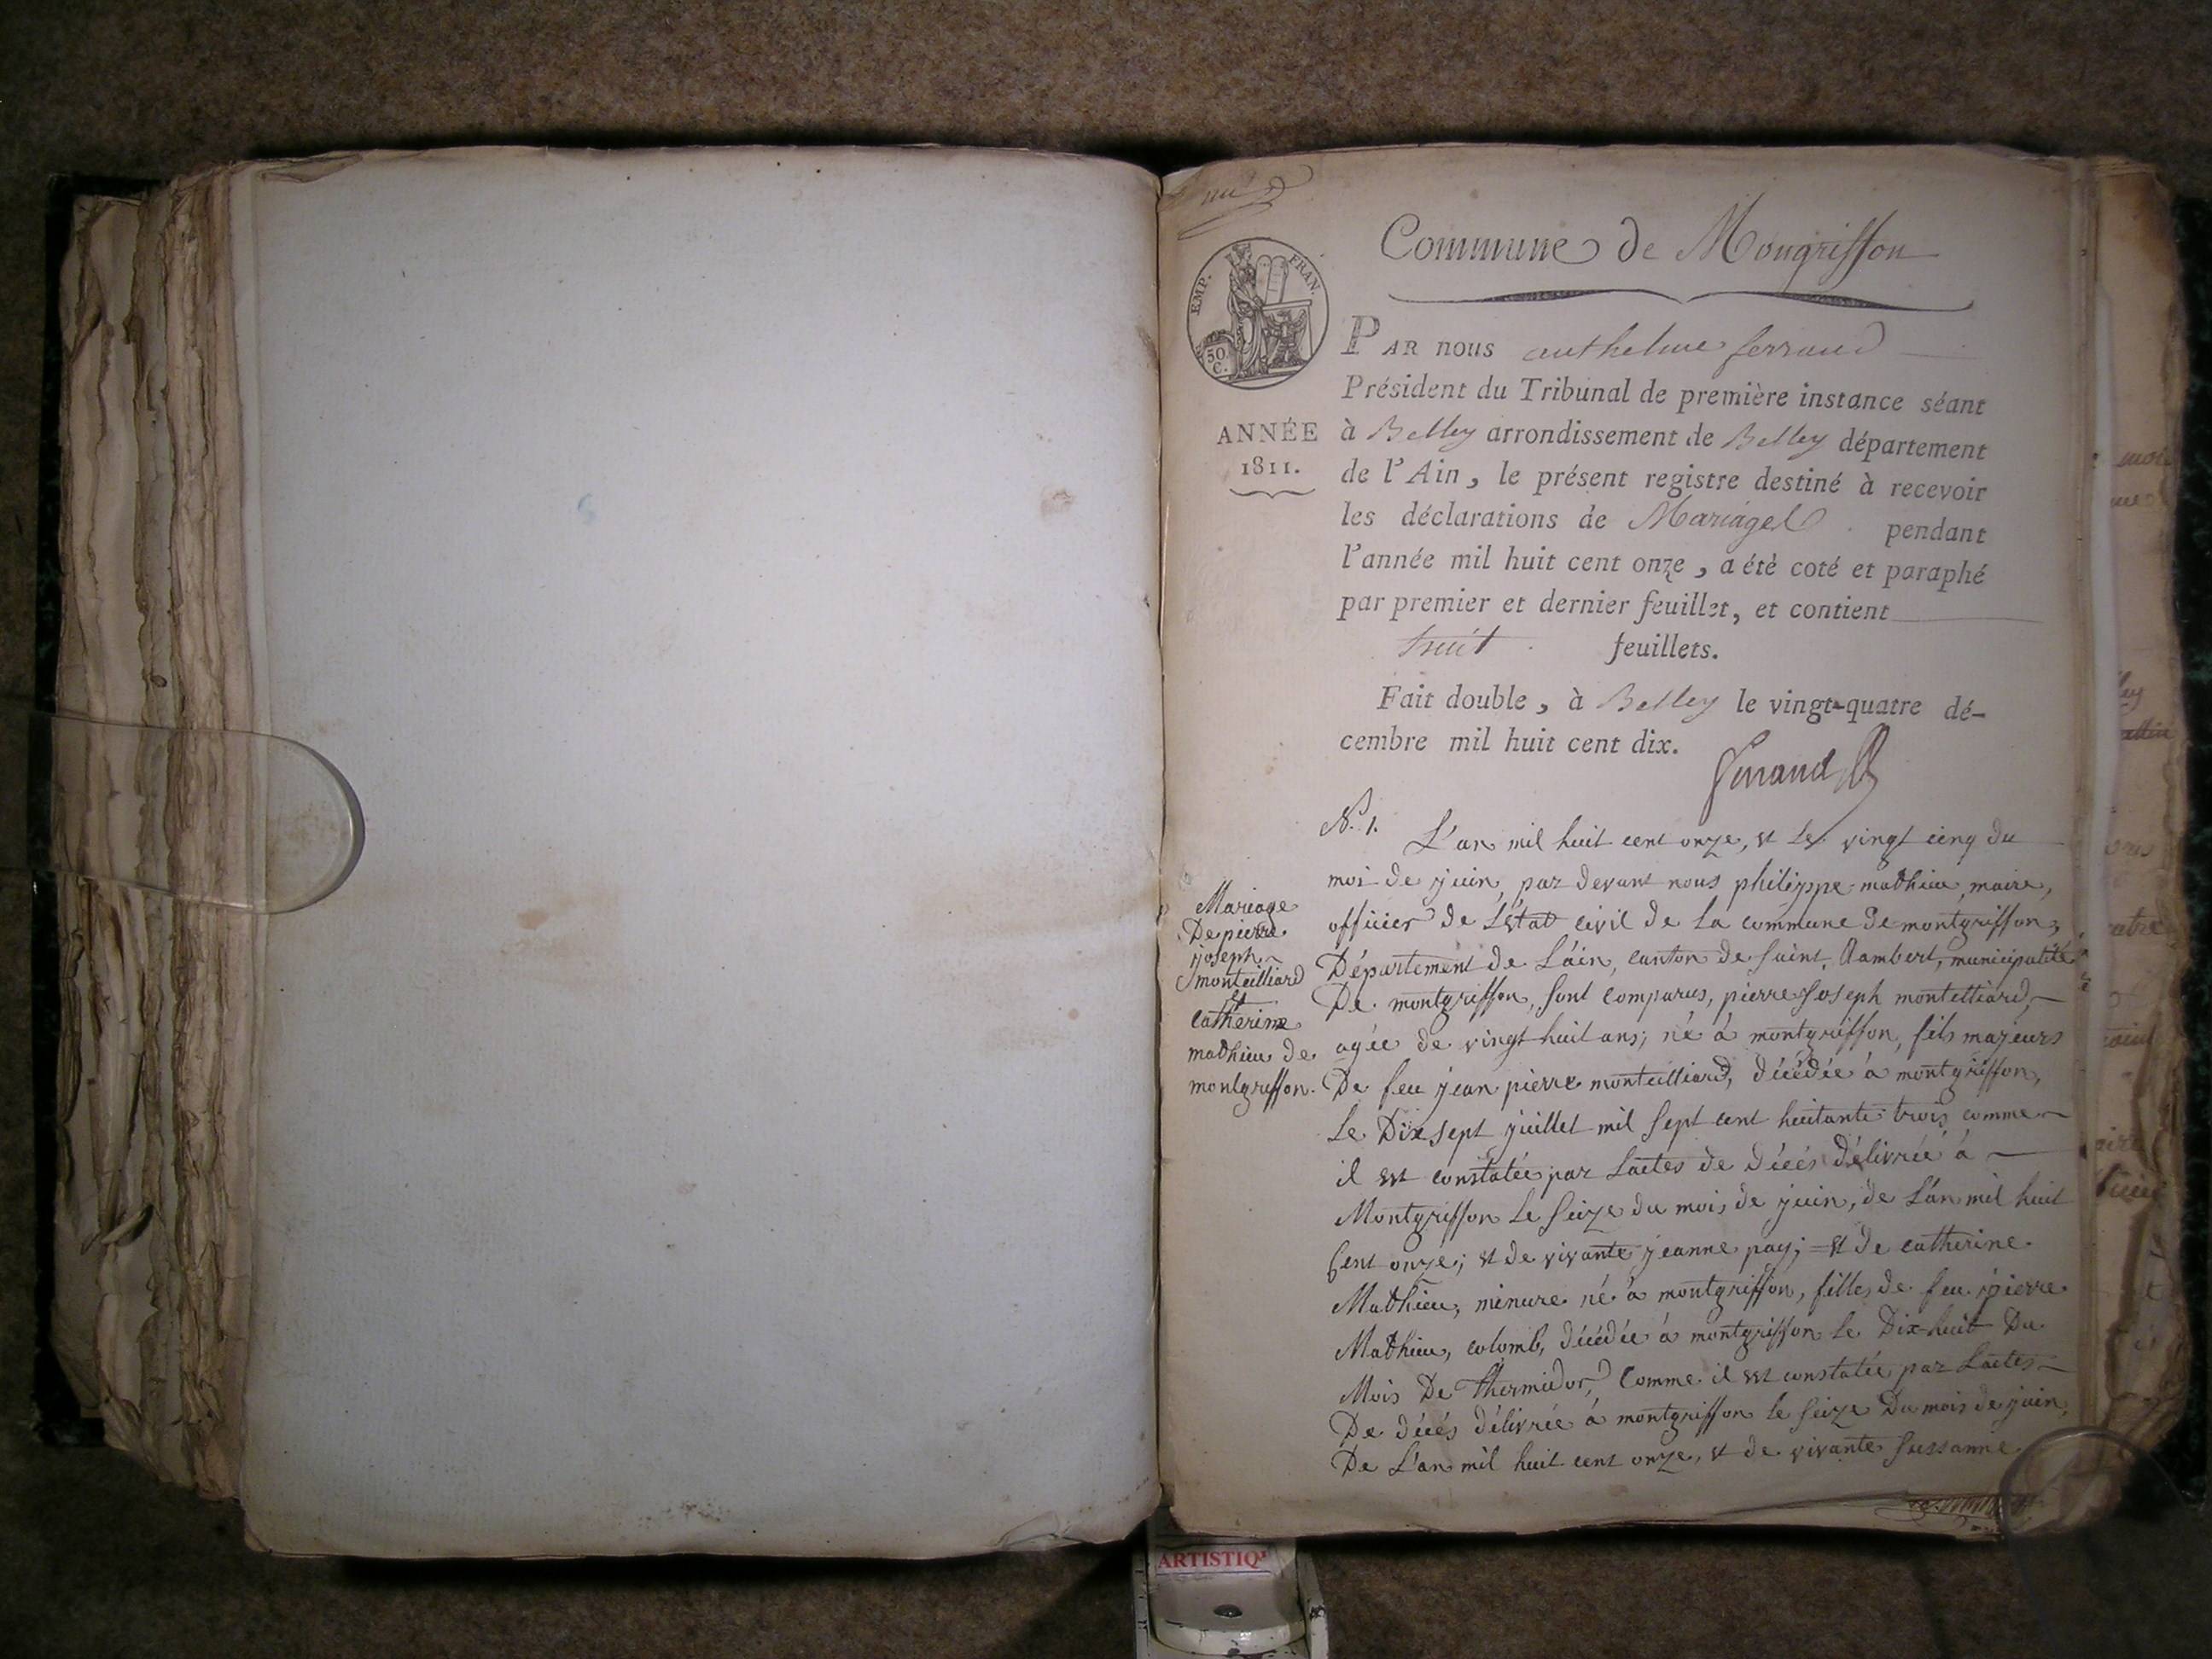 Commune de Mongriffon
EMP. FRAN.
50 C.
PAR nous anthelme ferrand
Président du Tribunal de première instance séant
ANNÉE
1811.
à Belley arrondissement de Belley département
de l'Ain, le présent registre destiné à recevoir
les déclarations de Mariages pendant
l'année mil huit cent onze, a été coté et paraphé
par premier et dernier feuillet, et contient
huit feuillets.
Fait double, à Belley le vingt-quatre dé-
cembre mil huit cent dix.
ferrand
N.º 1.
L'an mil huit cent onze, et le vingt cinq du
moi de juin, par devant nous philippe mathieu, maire,
officier de L'état civil de La commune de montgriffon,
Département de L'ain, canton de saint Rambert, municipalité
De montgriffon, sont comparus, pierre Joseph montelliard,
agée de vingt huit ans; né à montgriffon, fils majeurs
De feu jean pierre monteilliard, décédée à montgriffon,
Le Dix sept juillet mil sept cent huitante trois comme
il est constatée par Lactes de décés délivrée à
Montgriffon Le seize du mois de juin, de L'an mil huit
Cent onze; et de vivante jeanne pay; et de catherine
Mathieu, minure né à montgriffon, filles de feu pierre
Mathieu, colomb, décédée à montgriffon Le Dix-huit Du
Mois De thermidor, Comme il est constatée par Lactes
De décés délivrée à montgriffon le seize Du mois de juin,
De L'an mil huit cent onze, et de vivante sussanne
Mariage
De pierre
joseph
monteilliard
et
catherine
mathieu de
montgriffon.
ARTISTIQ